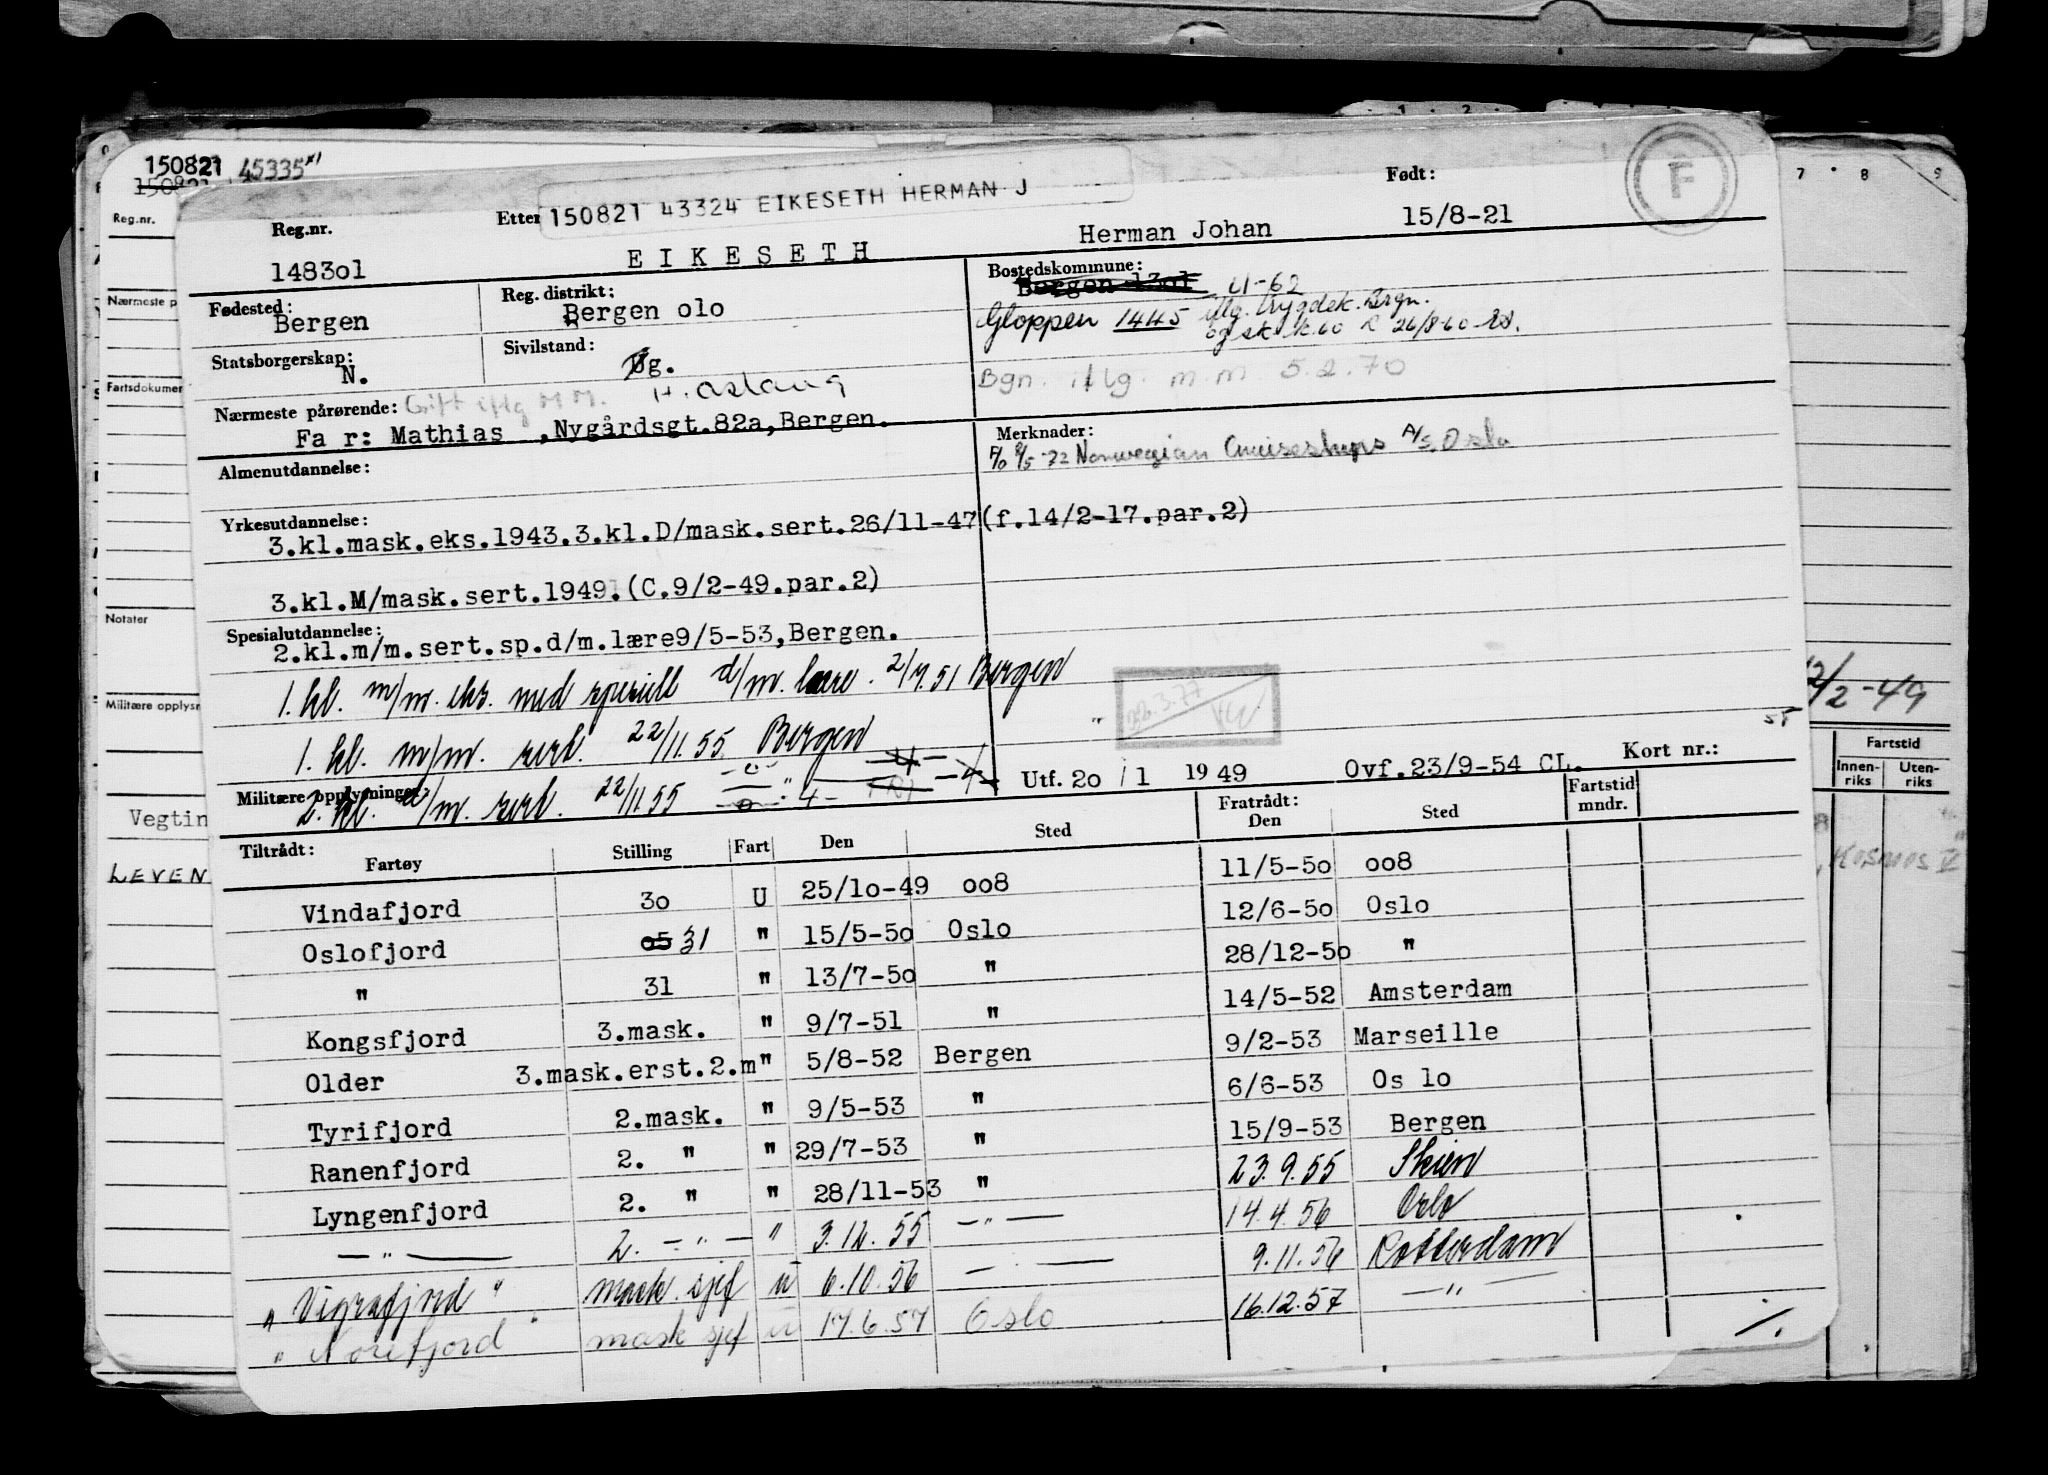 150821 45335
Reg.nr.
150821 43324 EIKESETH HERMAN J
Etter
Født:
F
Reg.nr.
148301
E I K E S E T H
Herman Johan
15/8-21
Fødested:
Bergen
Reg. distrikt:
Bergen 01o
Bostedskommune:
Bergen 1301 U-62
Gloppen 1445 iflg. trygdek. Brgn.
og sk. k. 60 R 26/8-60
Statsborgerskap:
N.
Sivilstand:
Ug.
Bgn. iflg. m.m 5.2.70
Nærmeste pårørende: Gift iflg M M. H. Aslaug
Fa r: Mathias ,Nygårdsgt.82a,Bergen.
Merknader:
Norwegian Cruiseships A/S, Oslo
Almenutdannelse:
Yrkesutdannelse:
3.kl.mask.eks.1943.3.kl.D/mask.sert.26/11-47(f.14/2-17.par.2)
3.kl.M/mask.sert.1949.(C.9/2-49.par.2)
Spesialutdannelse:
2.kl.m/m.sert.sp.d/m.lære9/5-53,Bergen.
1. kl. m/m. eks. med spesiell d/m. lære. 2/7.51 Bergen
22.3.77
1. kl. m/m. sert. 22/11.55 Bergen
Militære opplysninger:
2. kl. d/m. sert. 22/11.55
Utf. 2o / 1 1949 Ovf.23/9-54 CL. Kort nr.:
Tiltrådt:
Fratrådt:
Fartøy Stilling Fart Den Sted Den Sted Fartstid mndr.
Vindafjord 3o U 25/1o-49 oo8 11/5-5o oo8
Oslofjord o5 31 " 15/5-5o Oslo 12/6-5o Oslo
" 31 " 13/7-5o " 28/12-5o "
Kongsfjord 3.mask. " 9/7-51 " 14/5-52 Amsterdam
Older 3.mask.erst.2.m " 5/8-52 Bergen 9/2-53 Marseille
Tyrifjord 2.mask. " 9/5-53 " 6/6-53 Os lo
Ranenfjord 2. " " 29/7-53 " 15/9-53 Bergen
Lyngenfjord 2. " " 28/11-53 " 23.9.55 Skien
— " — 2. — " — " 3.12.55 — " — 14.4.56 Oslo
" Vigrafjord " mask. sjef u 6.10.56 — 9.11.56 Rotterdam
" Norefjord " mask sjef u 17.6.57 Oslo 16.12.57 — " —
Nærmeste p
Fartsdokumen
Notater
Militære opplysn
Vegtin
LEVEN
7 8 9
2/2-49
Fartstid
Innen-
riks
Uten-
riks
Kosmos V